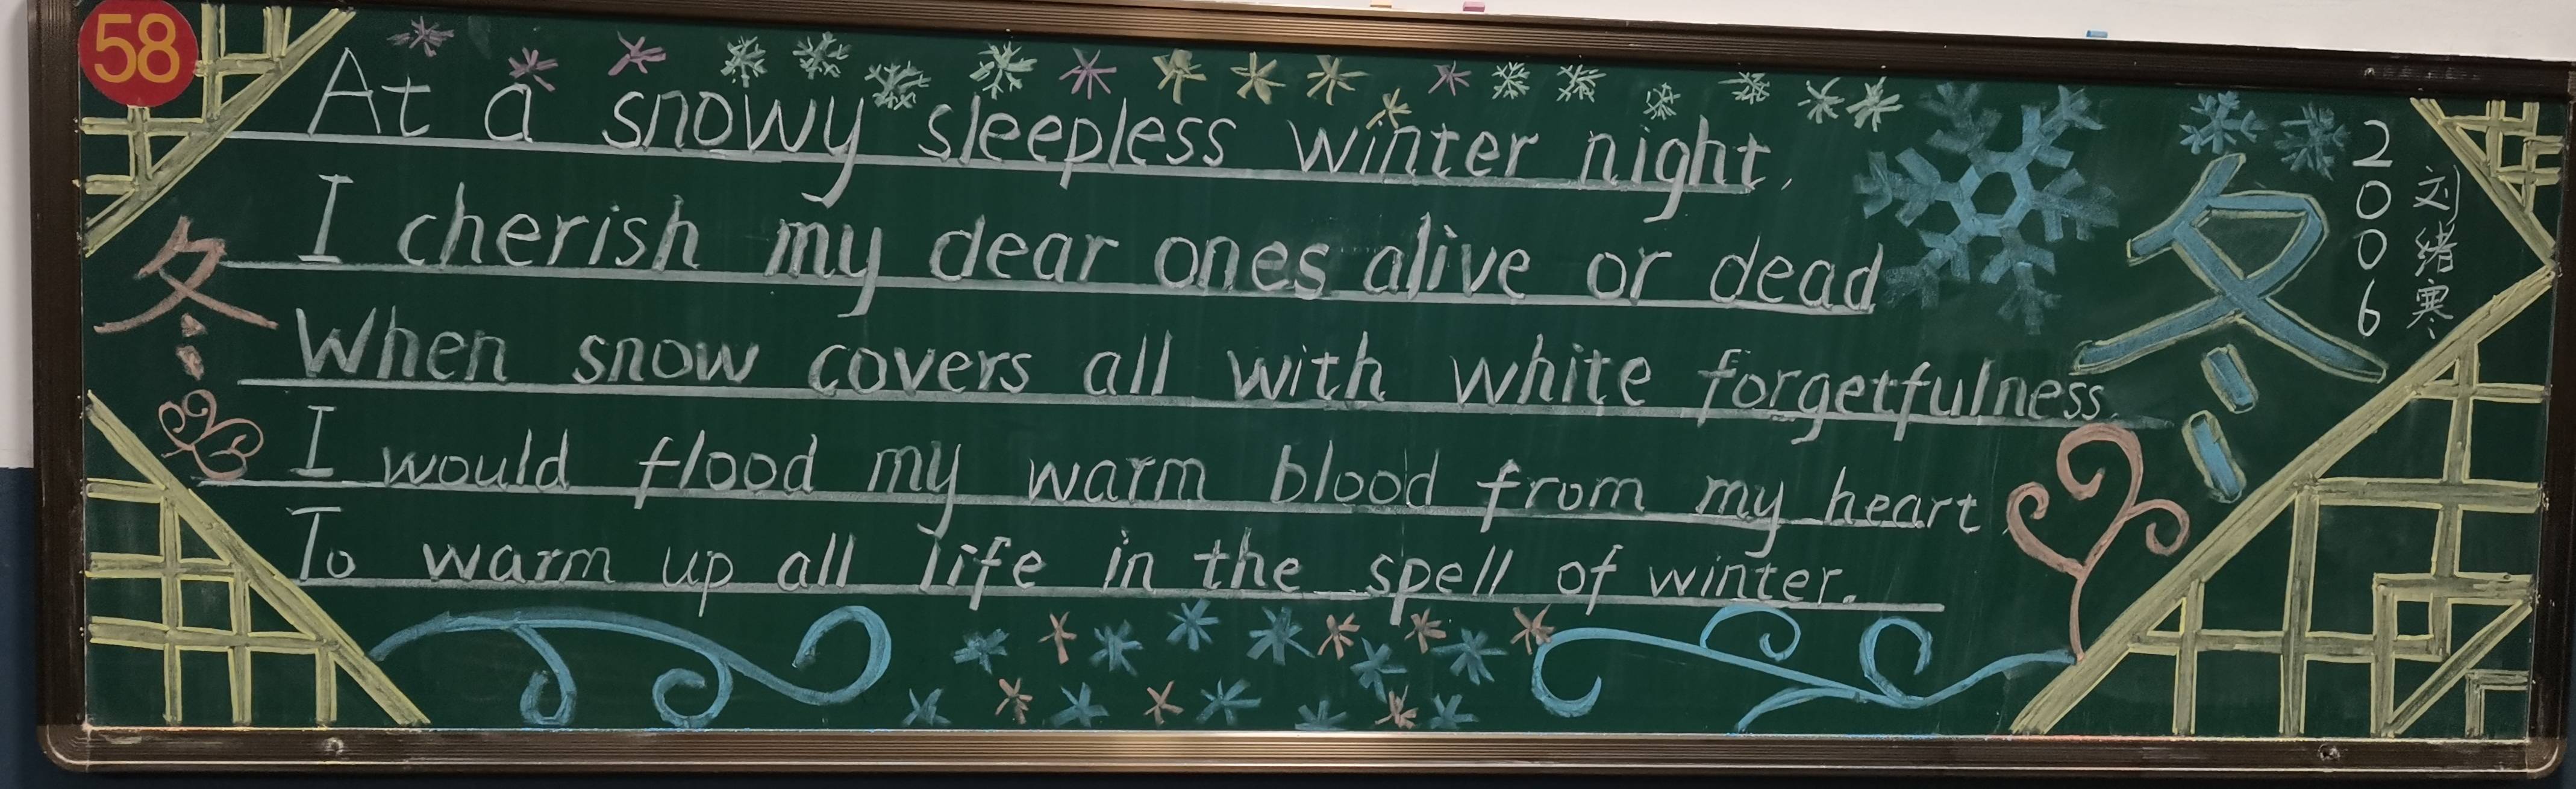 58
At a snowy sleepless winter night,
I cherish my dear ones alive or dead
When snow covers all with white forgetfulness.
I would flood my warm blood from my heart
To warm up all life in the spell of winter.
冬
冬
2006
刘绪寒